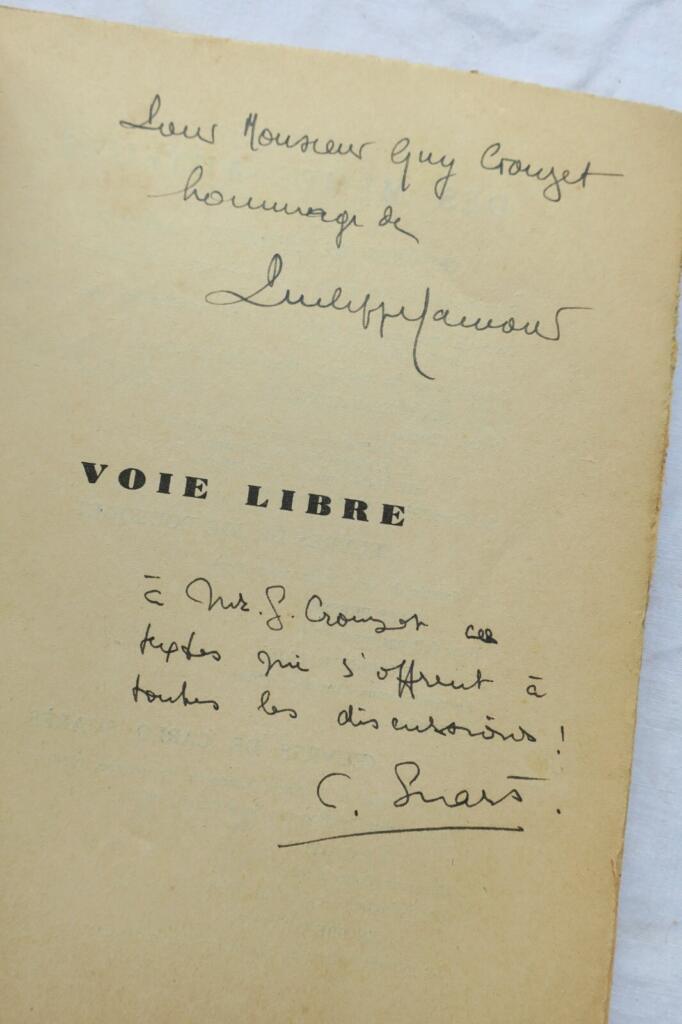 Pour Monsieur Guy Crouzet
hommage de
Philippe Lamour
VOIE LIBRE
à Mr. G. Crouzet ces
textes qui s'offrent à
toutes les discussions !
C. Suarès.